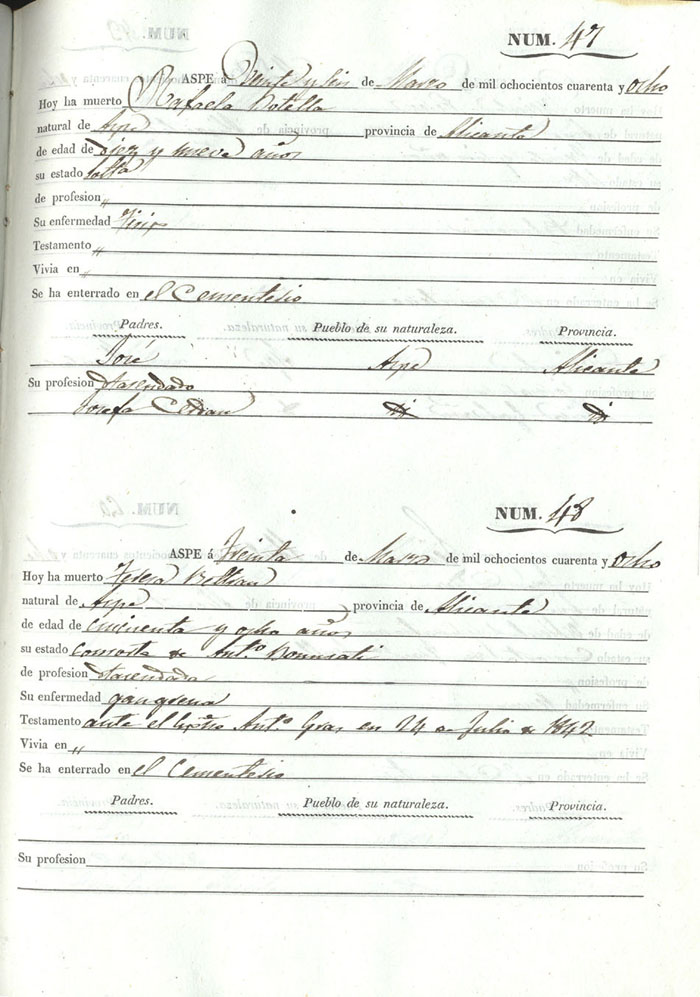 NUM. 47
ASPE á Veinte y seis de Marzo de mil ochocientos cuarenta y ocho
Hoy ha muerto Rafaela Botella
natural de Aspe provincia de Alicante
de edad de diez y nueve años
su estado solta
de profesion "
Su enfermedad Tisis
Testamento "
Vivia en "
Se ha enterrado en el Cementerio
Padres. Pueblo de su naturaleza. Provincia.
José Aspe Alicante
Su profesion Hasendado
Josefa id id
NUM. 48
ASPE á Treinta de Marzo de mil ochocientos cuarenta y ocho
Hoy ha muerto Teresa Beltran
natural de Aspe provincia de Alicante
de edad de cincuenta y ocho años
su estado consorte de Antº
de profesion Hasendada
Su enfermedad gangrena
Testamento ante el Antº Gras en 24 de Julio de 1842
Vivia en "
Se ha enterrado en el Cementerio
Padres. Pueblo de su naturaleza. Provincia.
Su profesion